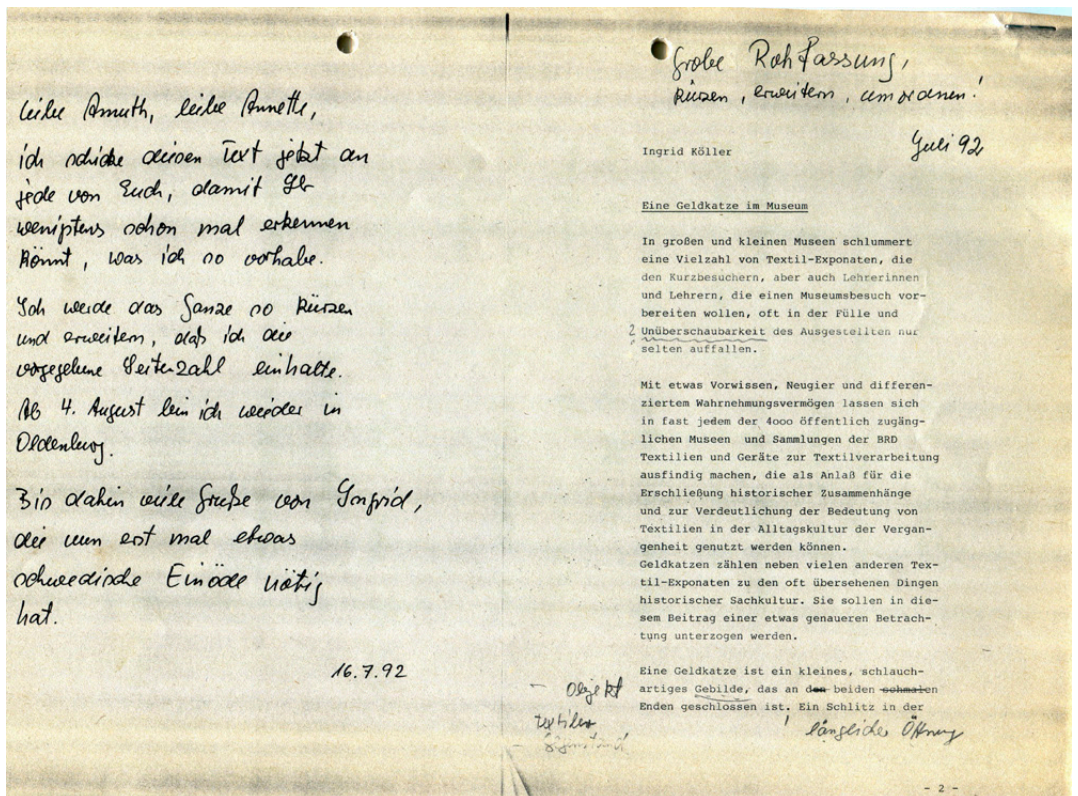 liebe Almuth, liebe Annette,
ich schicke diesen Text jetzt an
jede von Euch, damit Ihr
wenigstens schon mal erkennen
könnt, was ich so vorhabe.
Ich werde das Ganze so kürzen
und erweitern, daß ich die
vorgegebene Seitenzahl einhalte.
Ab 4. August bin ich wieder in
Oldenburg.
Bis dahin viele Grüße von Ingrid,
die nun erst mal etwas
schwedische Einöde nötig
hat.
16.7.92
Grobe Rohfassung,
kürzen, erweitern, umordnen!
Juli 92
Ingrid Köller
Eine Geldkatze im Museum
In großen und kleinen Museen schlummert
eine Vielzahl von Textil-Exponaten, die
den Kurzbesuchern, aber auch Lehrerinnen
und Lehrern, die einen Museumsbesuch vor-
bereiten wollen, oft in der Fülle und
? Unüberschaubarkeit des Ausgestellten nur
selten auffallen.
Mit etwas Vorwissen, Neugier und differen-
ziertem Wahrnehmungsvermögen lassen sich
in fast jedem der 4ooo öffentlich zugäng-
lichen Museen und Sammlungen der BRD
Textilien und Geräte zur Textilverarbeitung
ausfindig machen, die als Anlaß für die
Erschließung historischer Zusammenhänge
und zur Verdeutlichung der Bedeutung von
Textilien in der Alltagskultur der Vergan-
genheit genutzt werden können.
Geldkatzen zählen neben vielen anderen Tex-
til-Exponaten zu den oft übersehenen Dingen
historischer Sachkultur. Sie sollen in die-
sem Beitrag einer etwas genaueren Betrach-
tung unterzogen werden.
Eine Geldkatze ist ein kleines, schlauch-
artiges Gebilde, das an den beiden schmalen
Enden geschlossen ist. Ein Schlitz in der
– Objekt
textiler
– Gegenstand
! länglicher Öffnung
- 2 -